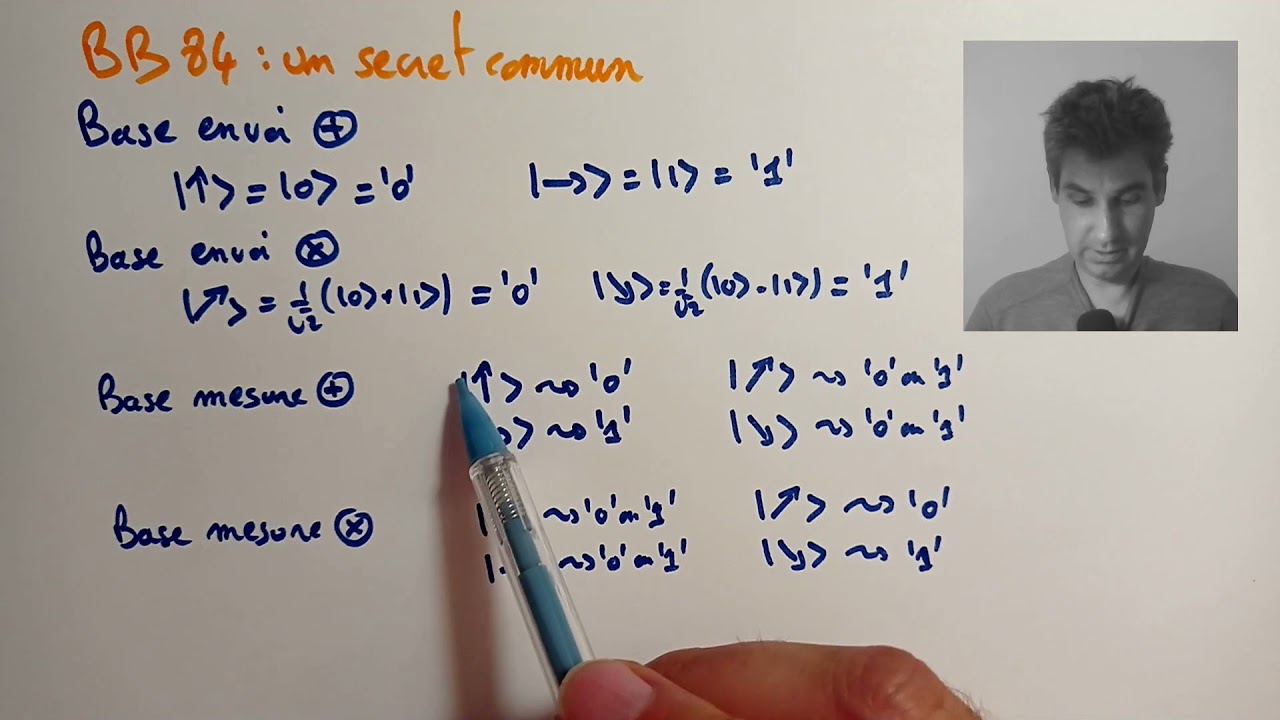 BB84 : un secret commun
Base envoi ⊕
|↑⟩ = |0⟩ = '0' |→⟩ = |1⟩ = '1'
Base envoi ⊗
|↗⟩ = 1/√2 (|0⟩+|1⟩) = '0' |↘⟩ = 1/√2 (|0⟩-|1⟩) = '1'
Base mesure ⊕ |↑⟩ ⇝ '0' |↗⟩ ⇝ '0' ou '1'
⟩ ⇝ '1' |↘⟩ ⇝ '0' ou '1'
Base mesure ⊗ | ⇝ '0' ou '1' |↗⟩ ⇝ '0'
| ⇝ '0' ou '1' |↘⟩ ⇝ '1'